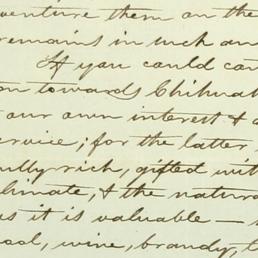 venture them on the
remains in such an
If you could can
on towards Chihuah
our own interest & a
service; for the latter
fully rich, gifted with
climate, & the natura
as it is valuable —
ool, wine, brandy,